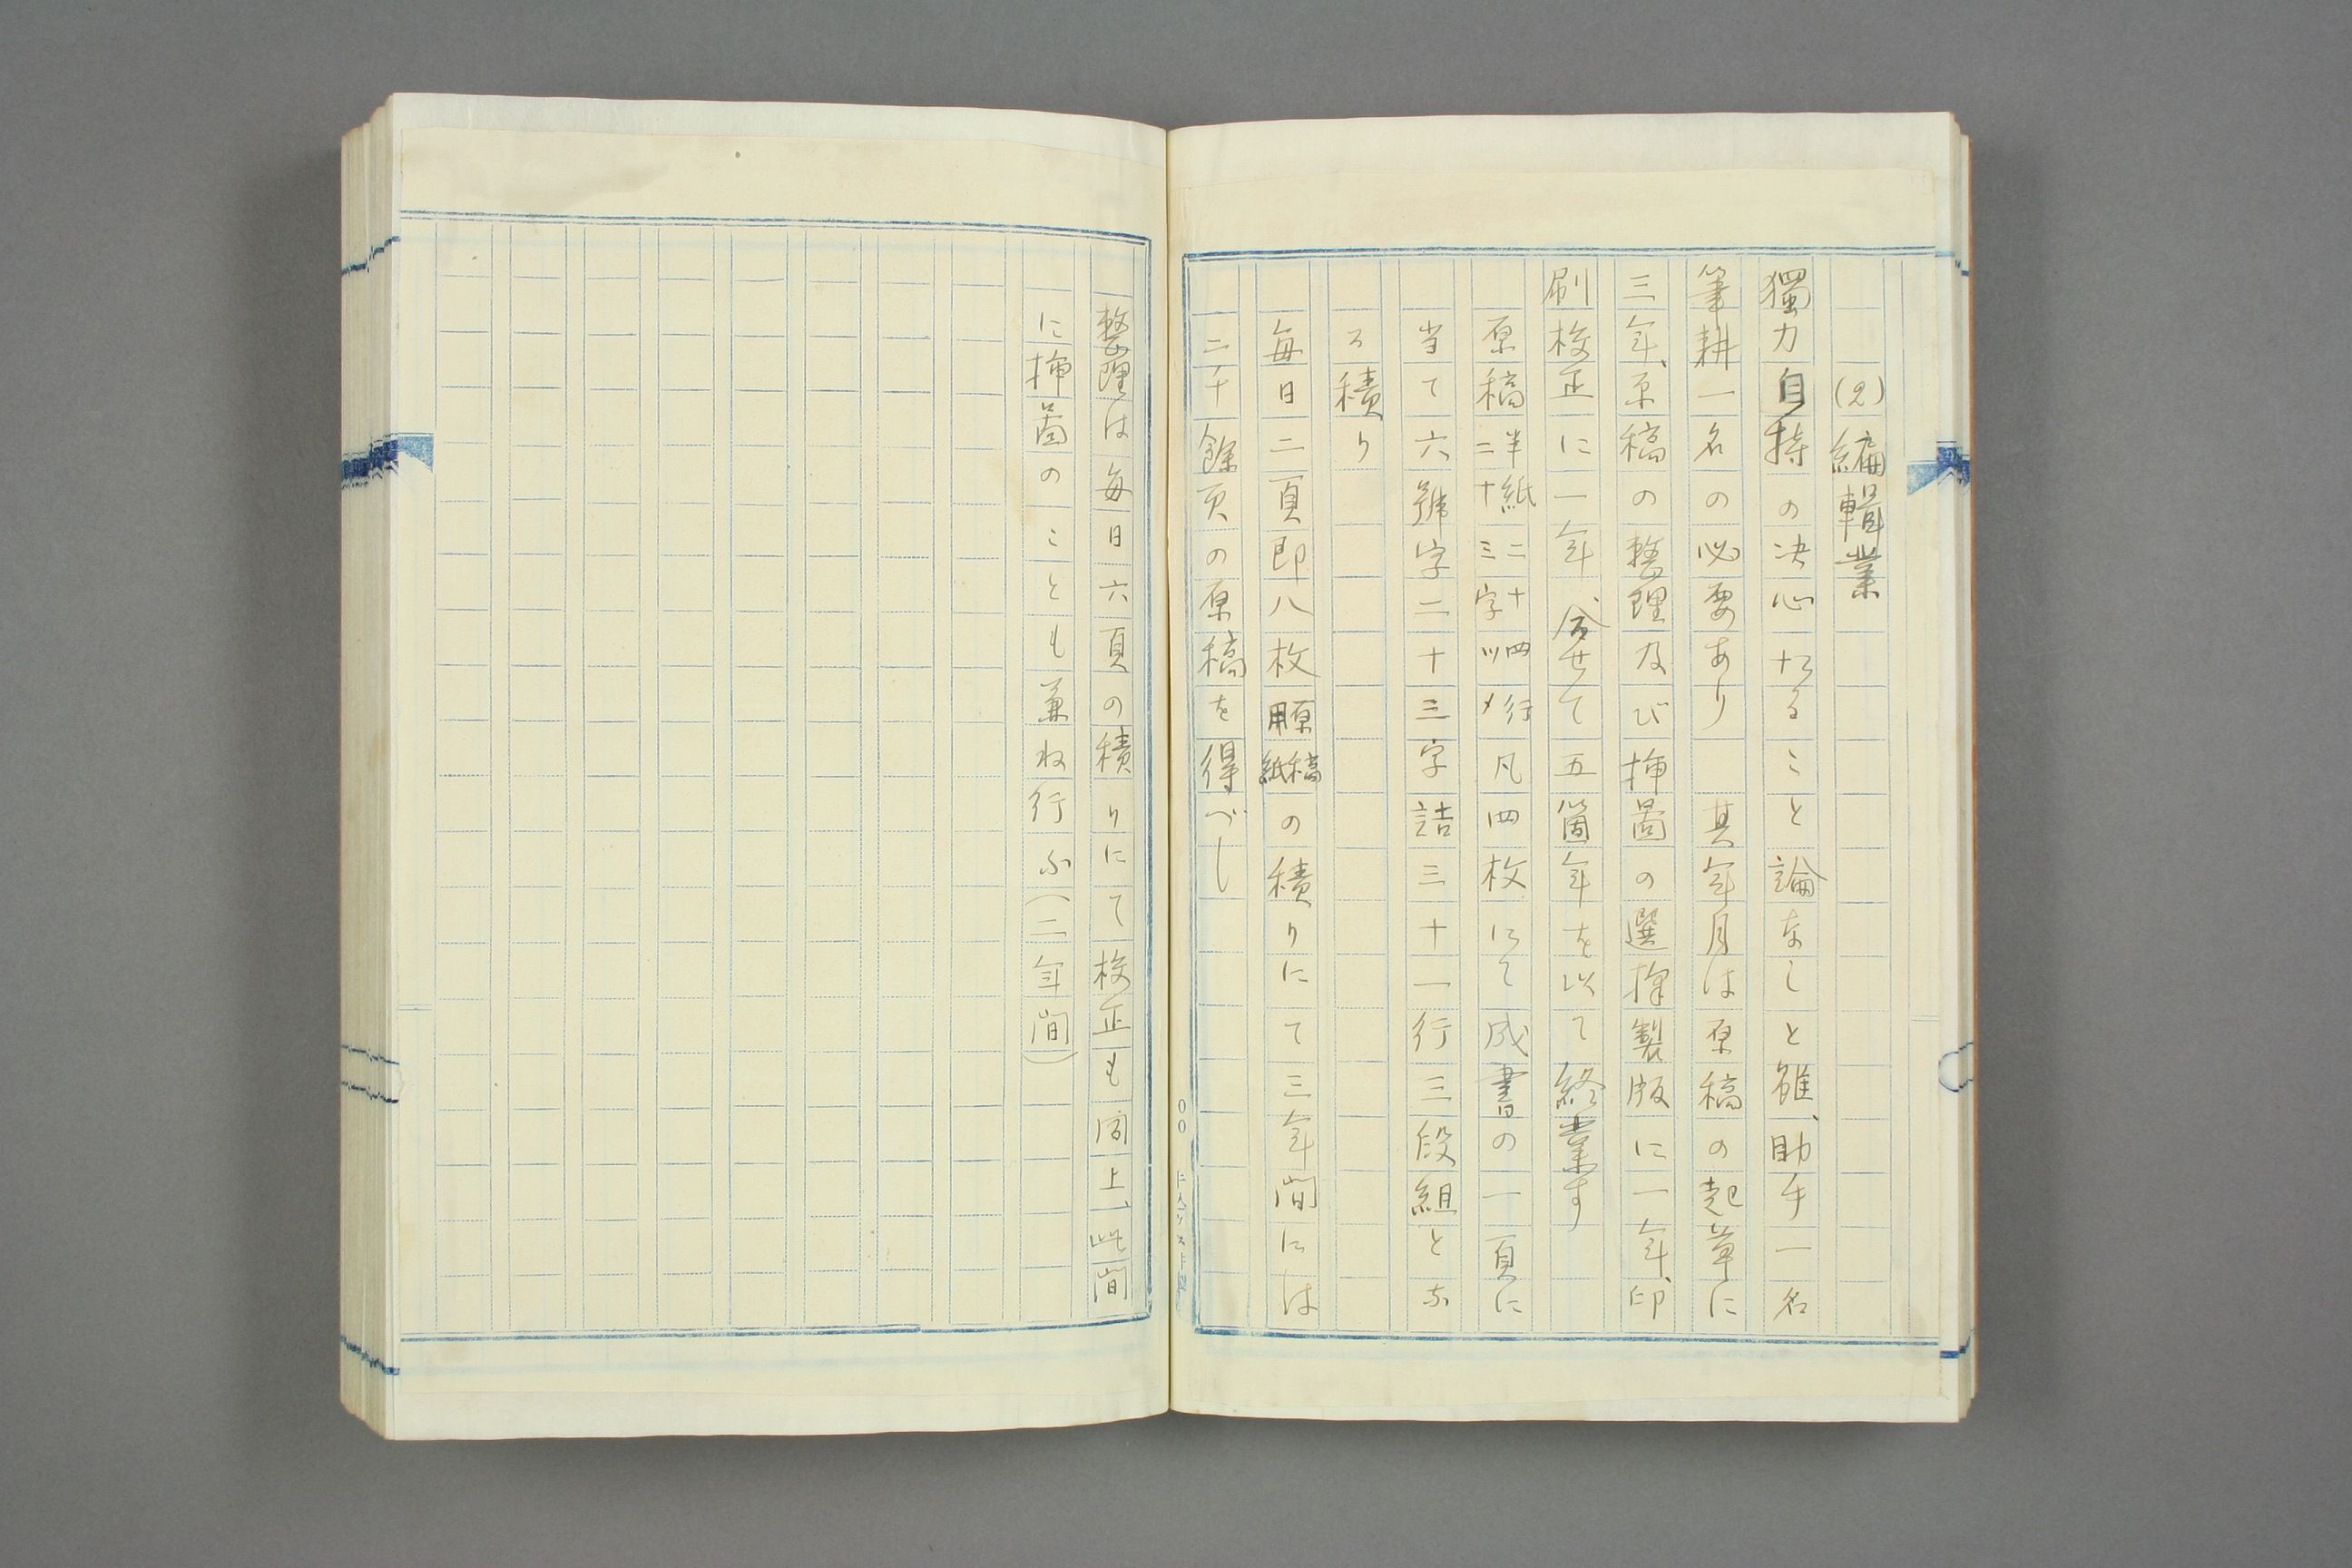 (2)編輯業
獨力自持の决心なることと論なしと雖、助手一名
筆耕一名の必要あり　其年月は原稿の起草に
三年、原稿の整理及び挿畵の選擇製版に一年、印
刷校正に一年、合せて五箇年を以て終業す
原稿半紙二十四行二十三字ツメ凡四枚にて成書の一頁に
当て六號字二十三字詰三十一行三段組とな
る積り
毎日二頁即八枚原稿用紙の積りにて三年間には
二千餘頁の原稿を得べし
整理は毎日六頁の積りにて校正も同上、此間
に挿畵のことも兼ね行ふ(二年間)